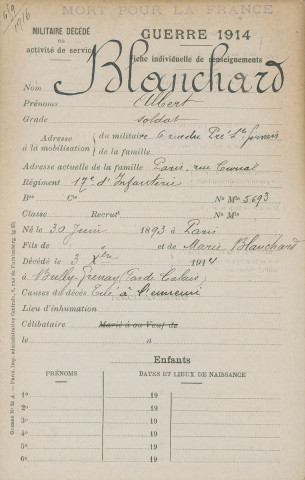 MORT POUR LA FRANCE
1916
MILITAIRE DÉCÉDÉ
en
activité de service
GUERRE 1914
Fiche individuelle de renseignements
Nom Blanchard
Prénoms Albert
Grade soldat
Adresse à la mobilisation
du militaire 6 rue du Pré St Gervais
de la famille
Adresse actuelle de la famille Paris, rue
Régiment 17e d'Infanterie
Bon Cie No Mle 5693
Classe Recrutt No Mle
Né le 30 Juin 1893 à Paris
Fils de " et de Marie Blanchard
Décédé le 3 Xbre 1914
à Bully-Grenay (Pas de Calais)
Causes du décès Tué à l'ennemi
Lieu d'inhumation
Célibataire Marié à ou Veuf de
le à
Enfants
PRÉNOMS DATES ET LIEUX DE NAISSANCE
1o 19
2o 19
3o 19
4o 19
5o 19
6o 19